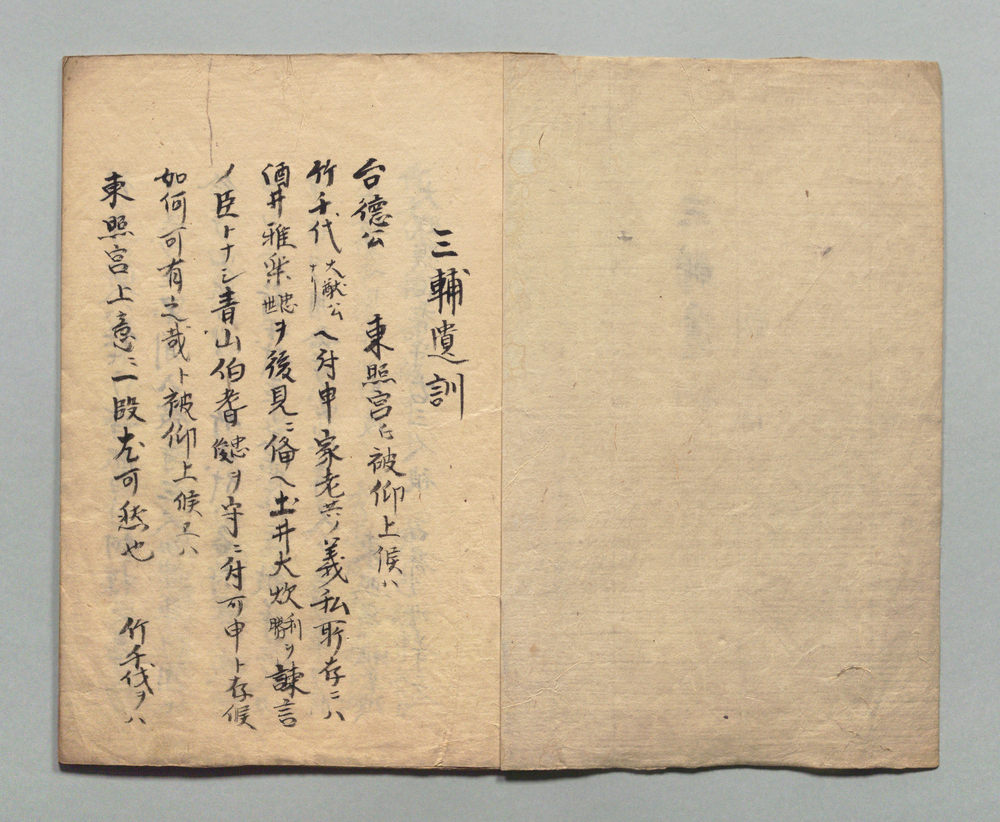 三輔遺訓
台德公　東照宮ヒ被仰上候ハ
竹千代大猷公ヘ付申家老共ノ義私所存ニハ
酒井雅楽忠世ヲ後見ニ備ヘ土井大炊利勝ヲ諫言
ノ臣トナシ青山伯耆忠俊ヲ守ニ付可申ト存候
如何可有之哉ト被仰上候ヘハ
東照宮上意ニ一段尤可然也　竹千代ヲハ